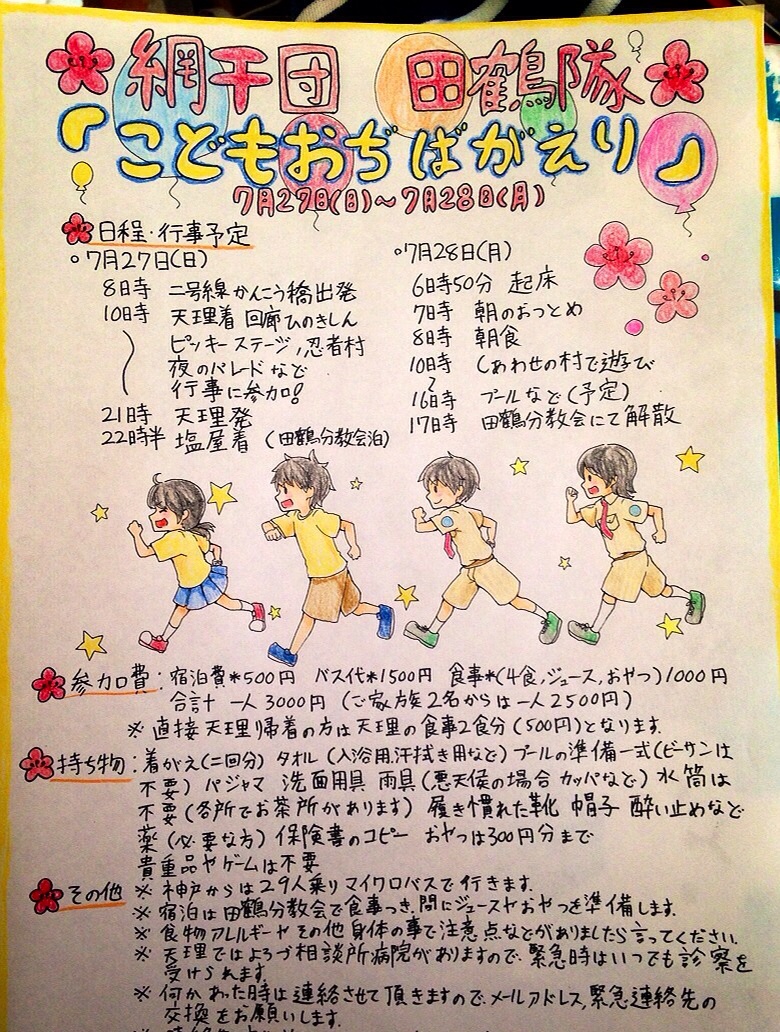 網干団 田鶴隊
「こどもおぢばがえり」
7月27日(日)~7月28日(月)
日程・行事予定
○7月27日(日)
8時 二号線かんこう橋出発
10時 天理着 回廊ひのきしん
〜 ピッキーステージ,忍者村
夜のパレードなど
行事に参加!
21時 天理発
22時半 塩屋着 (田鶴分教会泊)
○7月28日(月)
6時50分 起床
7時 朝のおつとめ
8時 朝食
10時 しあわせの村で遊び
〜
16時 プールなど(予定)
17時 田鶴分教会にて解散
参加費:宿泊費*500円 バス代*1500円 食事*(4食,ジュース,おやつ)1000円
合計 一人3000円 (ご家族2名からは一人2500円)
※直接天理帰着の方は天理の食事2食分(500円)となります.
持ち物:着がえ(二回分) タオル(入浴用,汗拭き用など) プールの準備一式(ビーサンは
不要) パジャマ 洗面用具 雨具(悪天候の場合 カッパなど) 水筒は
不要(各所でお茶所があります) 履き慣れた靴 帽子 酔い止めなど
薬(必要な方) 保険書のコピー おやつは300円分まで
貴重品やゲームは不要
その他 ※神戸からは29人乗りマイクロバスで行きます.
※宿泊は田鶴分教会で食事つき,間にジュースやおやつを準備します.
※食物アレルギーやその他身体の事で注意点などがありましたら言ってください.
※天理ではよろづ相談所病院がありますので、緊急時はいつでも診察を
受けられます.
※何かあった時は連絡させて頂きますので、メールアドレス,緊急連絡先の
交換をお願いします.